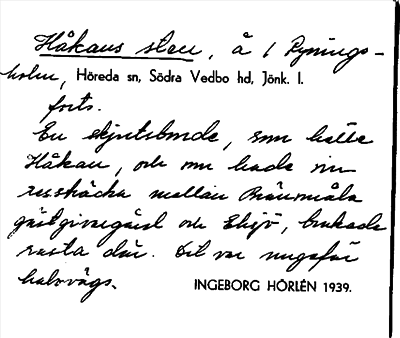 Håkans sten, å / Rynings-
holm, Höreda sn, Södra Vedbo hd, Jönk. l.
forts.
En skjutsbonde, som hette
Håkan, och som hade sin
ressträcka mellan Bränsmåla
gästgivaregård och Eksjö, brukade
rasta där. Det var ungefär
halvvägs.
INGEBORG HÖRLÉN 1939.